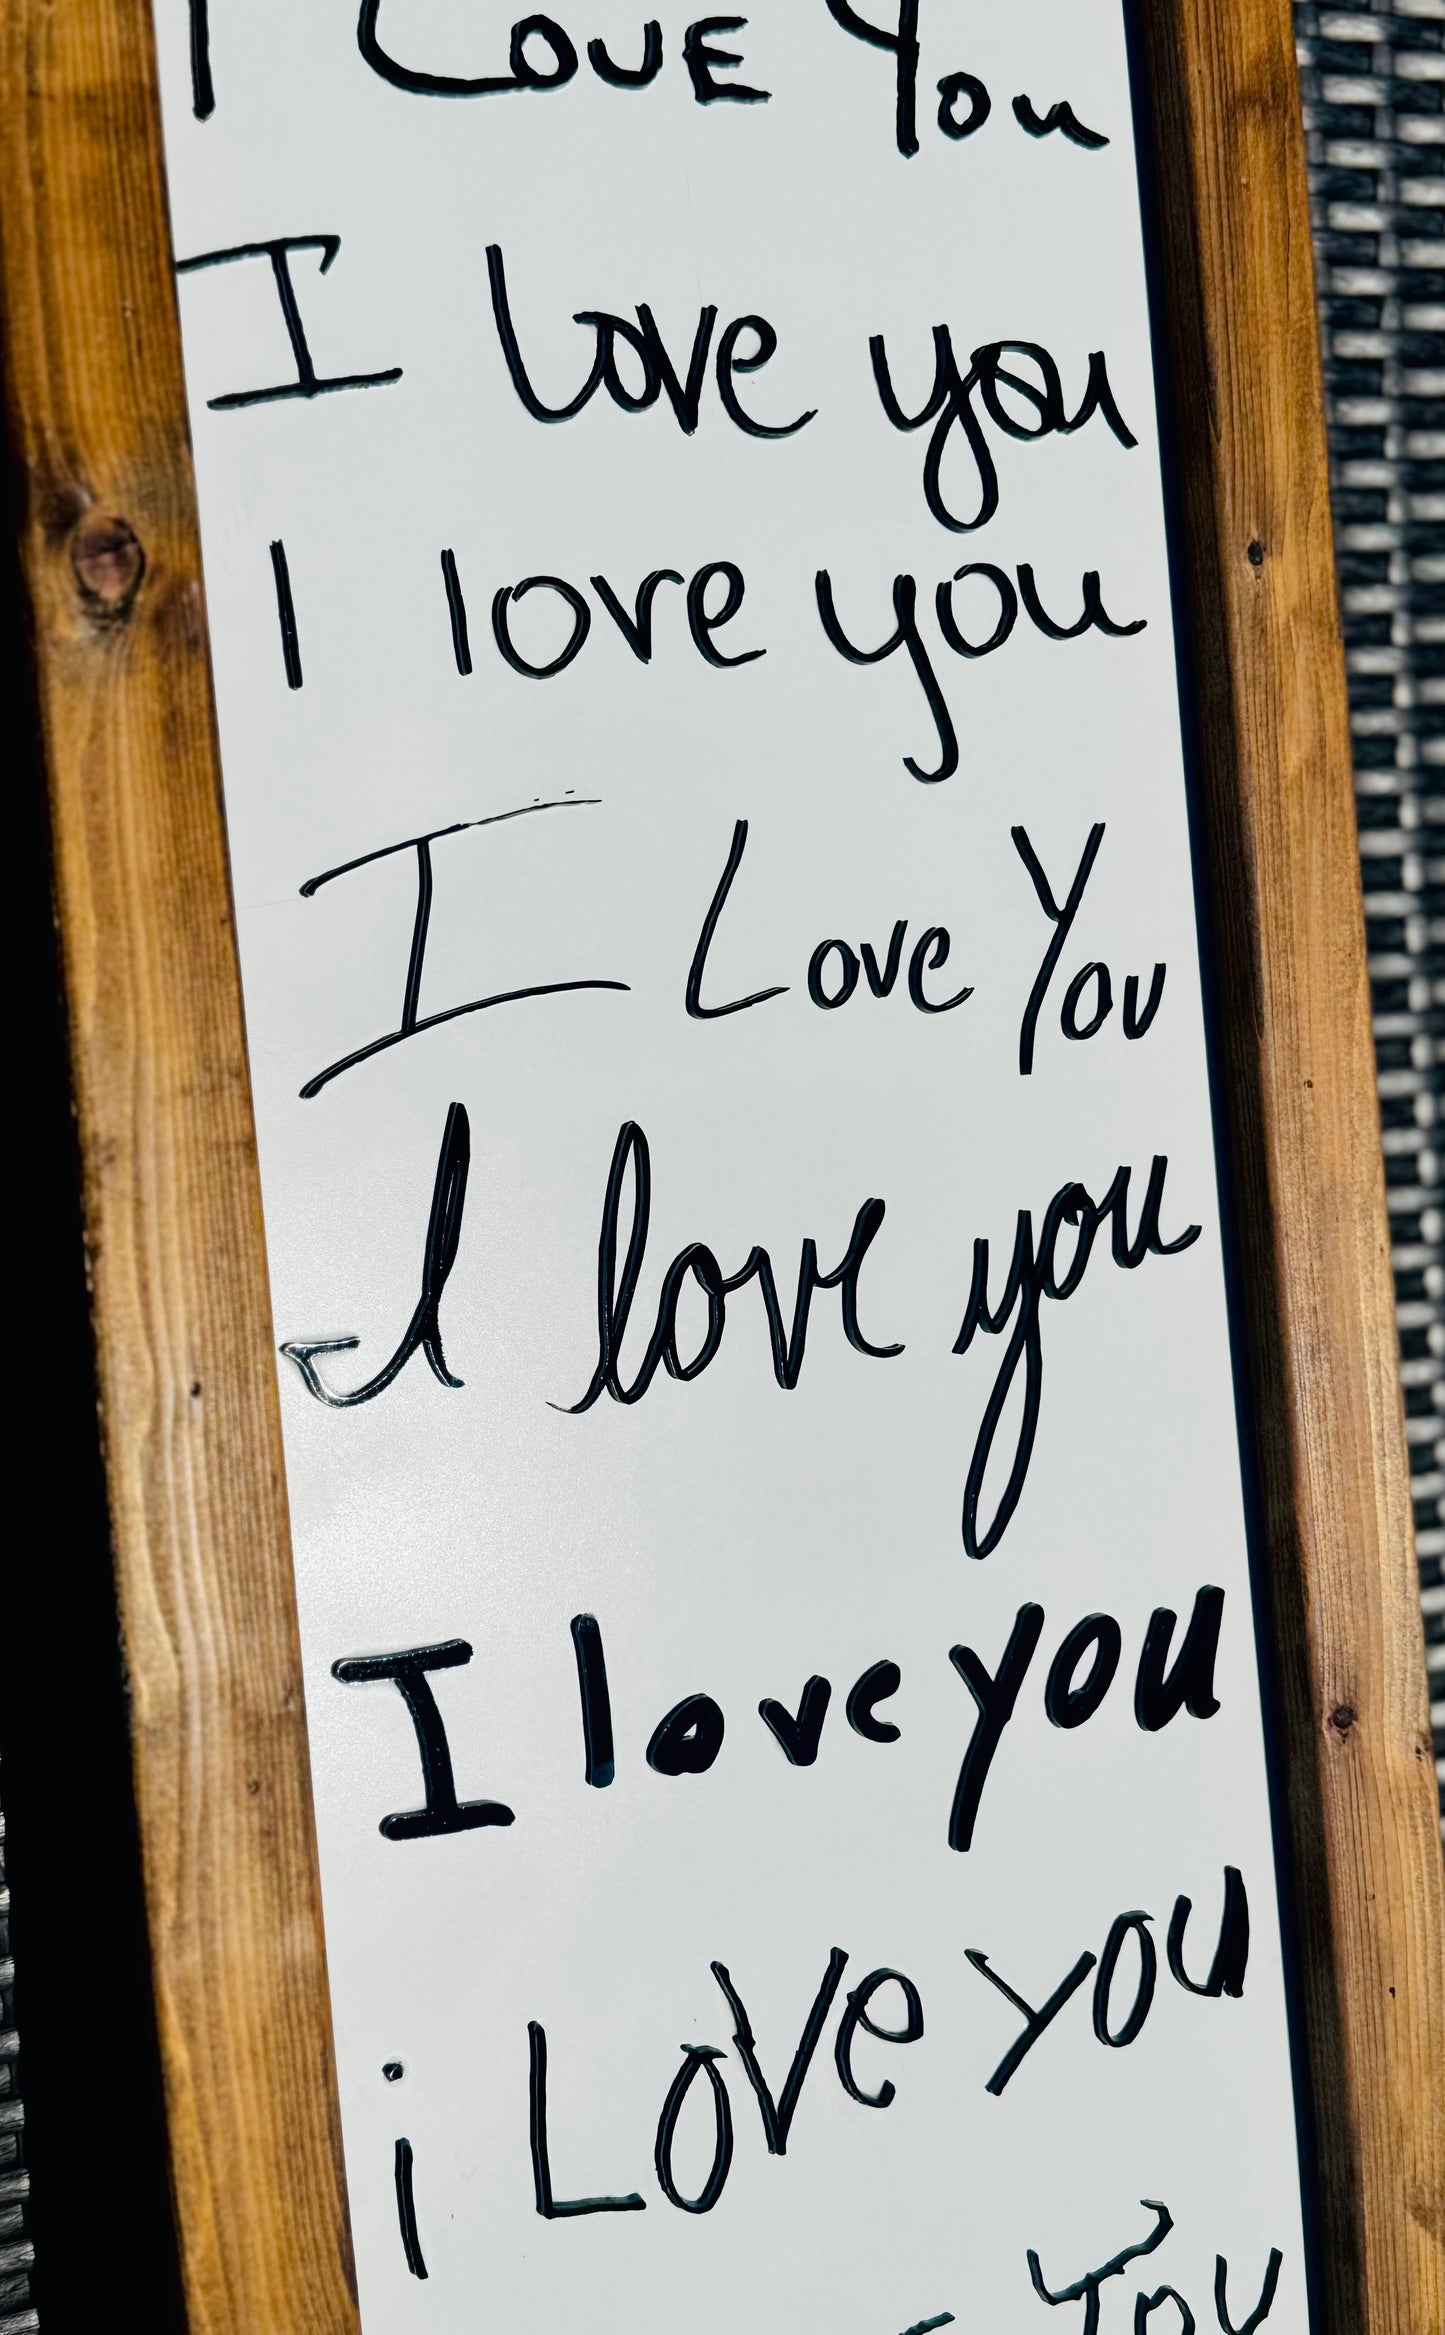 I LOVE You
I love you
I love you
I Love You
I love you
I love you
i LOVe you
You